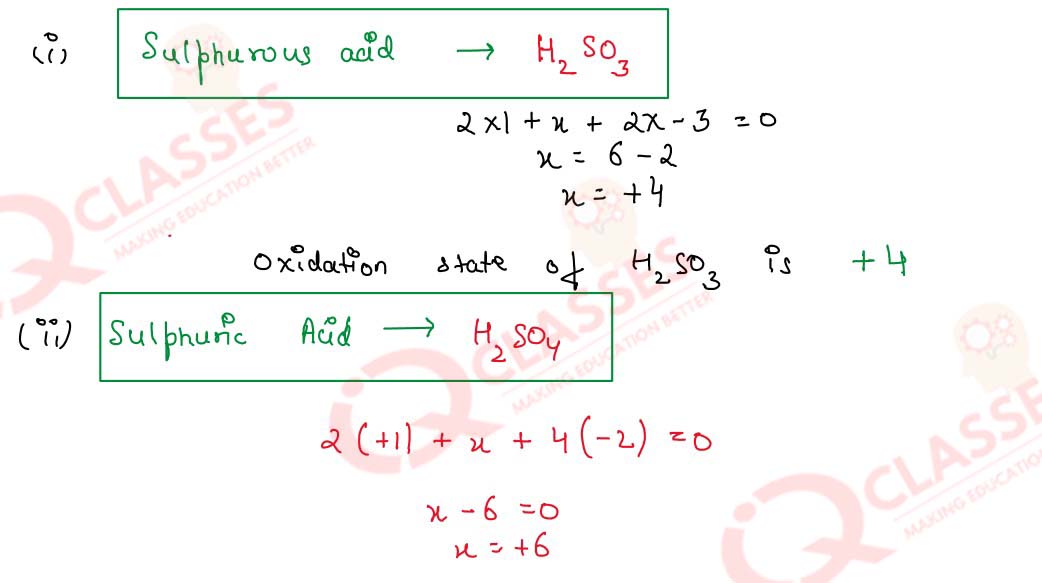 (i) Sulphurous acid → H₂SO₃
2×1 + x + 2x-3 = 0
x = 6-2
x = +4
Oxidation state of H₂SO₃ is +4
(ii) Sulphuric Acid → H₂SO₄
2(+1) + x + 4(-2) = 0
x-6 = 0
x = +6
CLASSES
MAKING EDUCATION BETTER
CLASSES
MAKING EDUCATION BETTER
CLASSES
MAKING EDUCATION